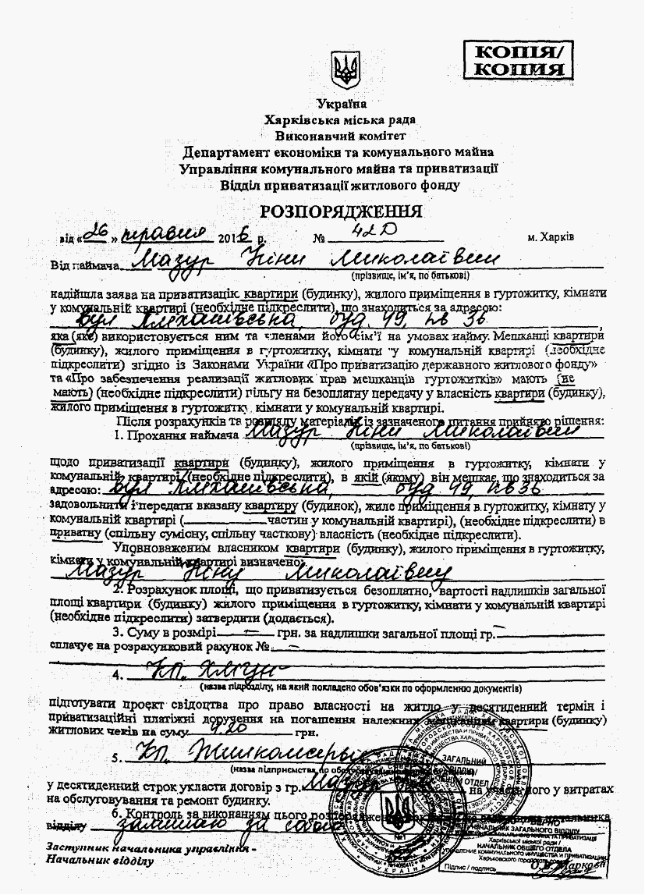 КОПІЯ/
КОПИЯ
Україна
Харківська міська рада
Виконавчий комітет
Департамент економіки та комунального майна
Управління комунального майна та приватизації
Відділ приватизації житлового фонду
РОЗПОРЯДЖЕННЯ
від «26» травня 2016 р. № 420 м. Харків
Від наймача Мазур Ніни Миколаївни
(прізвище, ім'я, по батькові)
надійшла заява на приватизацію квартири (будинку), жилого приміщення в гуртожитку, кімнати
у комунальній квартирі (необхідне підкреслити), що знаходиться за адресою:
буд. 49, кв 36
яка (яке) використовується ним та членами його сім'ї на умовах найму. Мешканці квартири
(будинку), жилого приміщення в гуртожитку, кімнати у комунальній квартирі (необхідне
підкреслити) згідно із Законами України «Про приватизацію державного житлового фонду»
та «Про забезпечення реалізації житлових прав мешканців гуртожитків» мають (не
мають) (необхідне підкреслити) пільгу на безоплатну передачу у власність квартири (будинку),
жилого приміщення в гуртожитку, кімнати у комунальній квартирі.
Після розрахунків та розгляду матеріалів із зазначеного питання прийнято рішення:
1. Прохання наймача Мазур Ніни Миколаївни
(прізвище, ім'я, по батькові)
щодо приватизації квартири (будинку), жилого приміщення в гуртожитку, кімнати у
комунальній квартирі (необхідне підкреслити), в якій (якому) він мешкає, що знаходиться за
адресою: буд 49, кв 36
задовольнити і передати вказану квартиру (будинок), жиле приміщення в гуртожитку, кімнату у
комунальній квартирі ( частин у комунальній квартирі), (необхідне підкреслити) в
приватну (спільну сумісну, спільну часткову) власність (необхідне підкреслити).
Уповноваженим власником квартири (будинку), жилого приміщення в гуртожитку,
кімнати у комунальній квартирі визначено:
Мазур Ніну Миколаївну
2. Розрахунок площі, що приватизується безоплатно, вартості надлишків загальної
площі квартири (будинку) жилого приміщення в гуртожитку, кімнати у комунальній квартирі
(необхідне підкреслити) затвердити (додається).
3. Суму в розмірі — грн. за надлишки загальної площі гр.
сплачує на розрахунковий рахунок № —
4.
(назва підрозділу, на який покладено обов'язки по оформленню документів)
підготувати проект свідоцтва про право власності на житло у десятиденний термін і
приватизаційні платіжні доручення на погашення належних мешканцям квартири (будинку)
житлових чеків на суму грн.
5. КП Жилкомсервіс
(назва підприємства по
у десятиденний строк укласти договір з гр. Мазур на участь його у витратах
на обслуговування та ремонт будинку.
6. Контроль за виконанням цього розпорядження
відділу залишаю за собою
Заступник начальника управління -
Начальник відділу
ЗАГАЛЬНИЙ
ВІДДІЛ
ОТДЕЛ
УКРАЇНА
НАЧАЛЬНИК ЗАГАЛЬНОГО ВІДДІЛУ
Харківської міської ради /
НАЧАЛЬНИК ОБЩЕГО ОТДЕЛА
Підпис / подпись